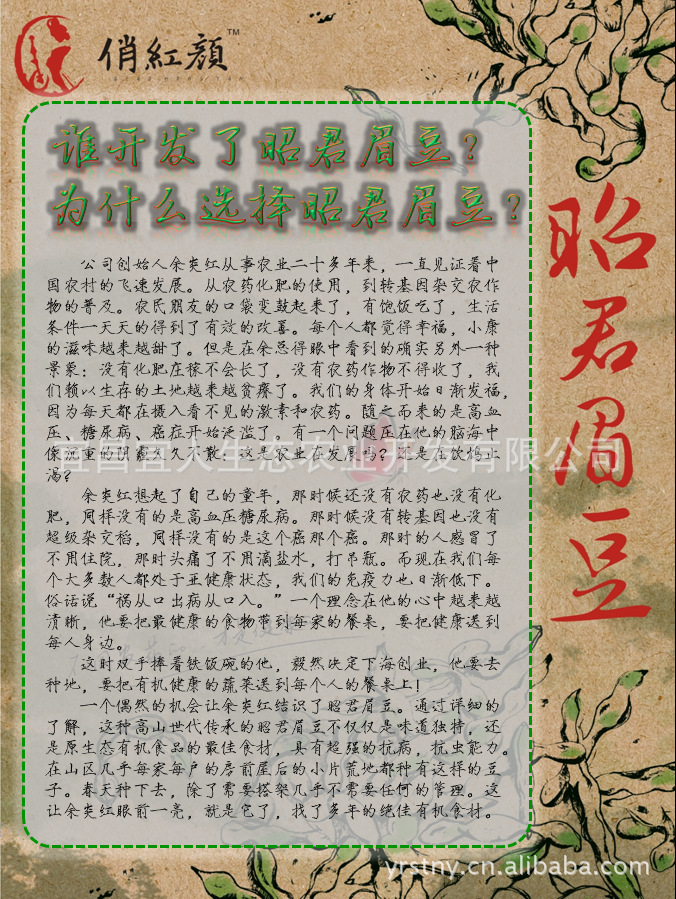 俏紅顏™
谁开发了昭君眉豆？
为什么选择昭君眉豆？
昭君眉豆
公司创始人余炎红从事农业二十多年来，一直见证着中
国农村的飞速发展。从农药化肥的使用，到转基因杂交农作
物的普及。农民朋友的口袋变鼓起来了，有饱饭吃了，生活
条件一天天的得到了有效的改善。每个人都觉得幸福，小康
的滋味越来越甜了。但是在余总得眼中看到的确实另外一种
景象：没有化肥庄稼不会长了，没有农药作物不得收了，我
们赖以生存的土地越来越贫瘠了。我们的身体开始日渐发福，
因为每天都在摄入看不见的激素和农药。随之而来的是高血
压、糖尿病、癌症开始泛滥了。有一个问题压在他的脑海中
像沉重的阴霾久久不散：这是农业在发展吗？还是在饮鸩止
渴？
余炎红想起了自己的童年，那时候还没有农药也没有化
肥，同样没有的是高血压糖尿病。那时候没有转基因也没有
超级杂交稻，同样没有的是这个癌那个癌。那时的人感冒了
不用住院，那时头痛了不用滴盐水，打吊瓶。而现在我们每
个大多数人都处于亚健康状态，我们的免疫力也日渐低下。
俗话说“祸从口出病从口入。”一个理念在他的心中越来越
清晰，他要把最健康的食物带到每家的餐桌，要把健康送到
每人身边。
这时双手捧着铁饭碗的他，毅然决定下海创业，他要去
种地，要把有机健康的蔬菜送到每个人的餐桌上！
一个偶然的机会让余炎红结识了昭君眉豆。通过详细的
了解，这种高山世代传承的昭君眉豆不仅仅是味道独特，还
是原生态有机食品的最佳食材，具有超强的抗病，抗虫能力。
在山区几乎每家每户的房前屋后的小片荒地都种有这样的豆
子。春天种下去，除了需要搭架几乎不需要任何的管理。这
让余炎红眼前一亮，就是它了，找了多年的绝佳有机食材。
宜昌宜人生态农业开发有限公司
yrstny.cn.alibaba.com